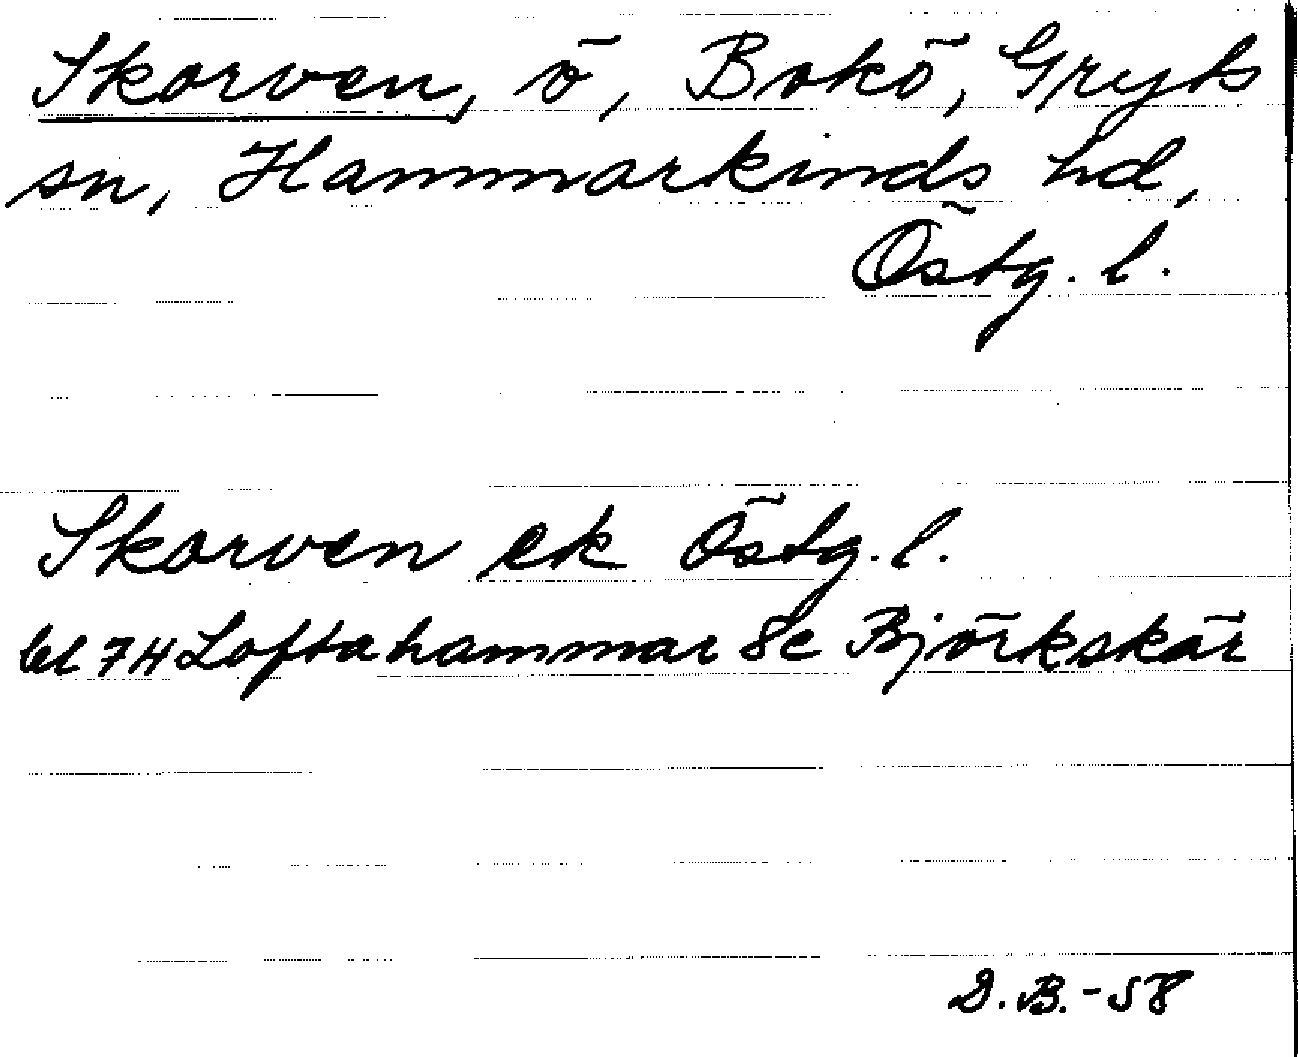 Skorven, ö, Bokö, Gryts
sn, Hammarkinds hd,
Östg. l.
Skorven ek Östg. l.
bl 7H Loftahammar 8c Björkskär
D.B.-58